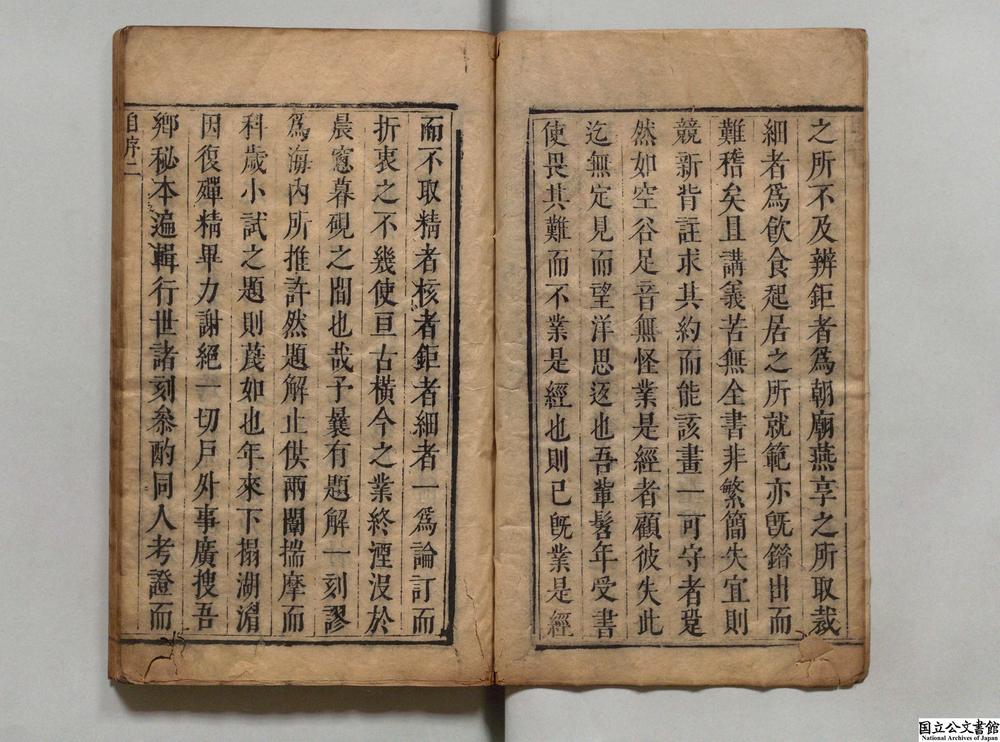 之所不及辨鉅者爲朝廟燕享之所取裁
細者爲飲食起居之所就範亦旣錯出而
難稽矣且講義苦無全書非繁簡失宜則
競新背註求其約而能該畫一可守者寔
然如空谷足音無怪業是經者顧彼失此
迄無定見而望洋思返也吾輩髫年受書
使畏其難而不業是經也則已旣業是經
而不取精者核者鉅者細者一爲論訂而
折衷之不幾使亘古橫今之業終湮沒於
晨窻暮硯之間也哉予曩有題解一刻謬
爲海內所推許然題解止供兩闈揣摩而
科歲小試之題則蔑如也年來下搨湖濱
因復殫精畢力謝絕一切戶外事廣搜吾
鄉秘本遍輯行世諸刻叅酌同人考證而
自序二
国立公文書館
National Archives of Japan